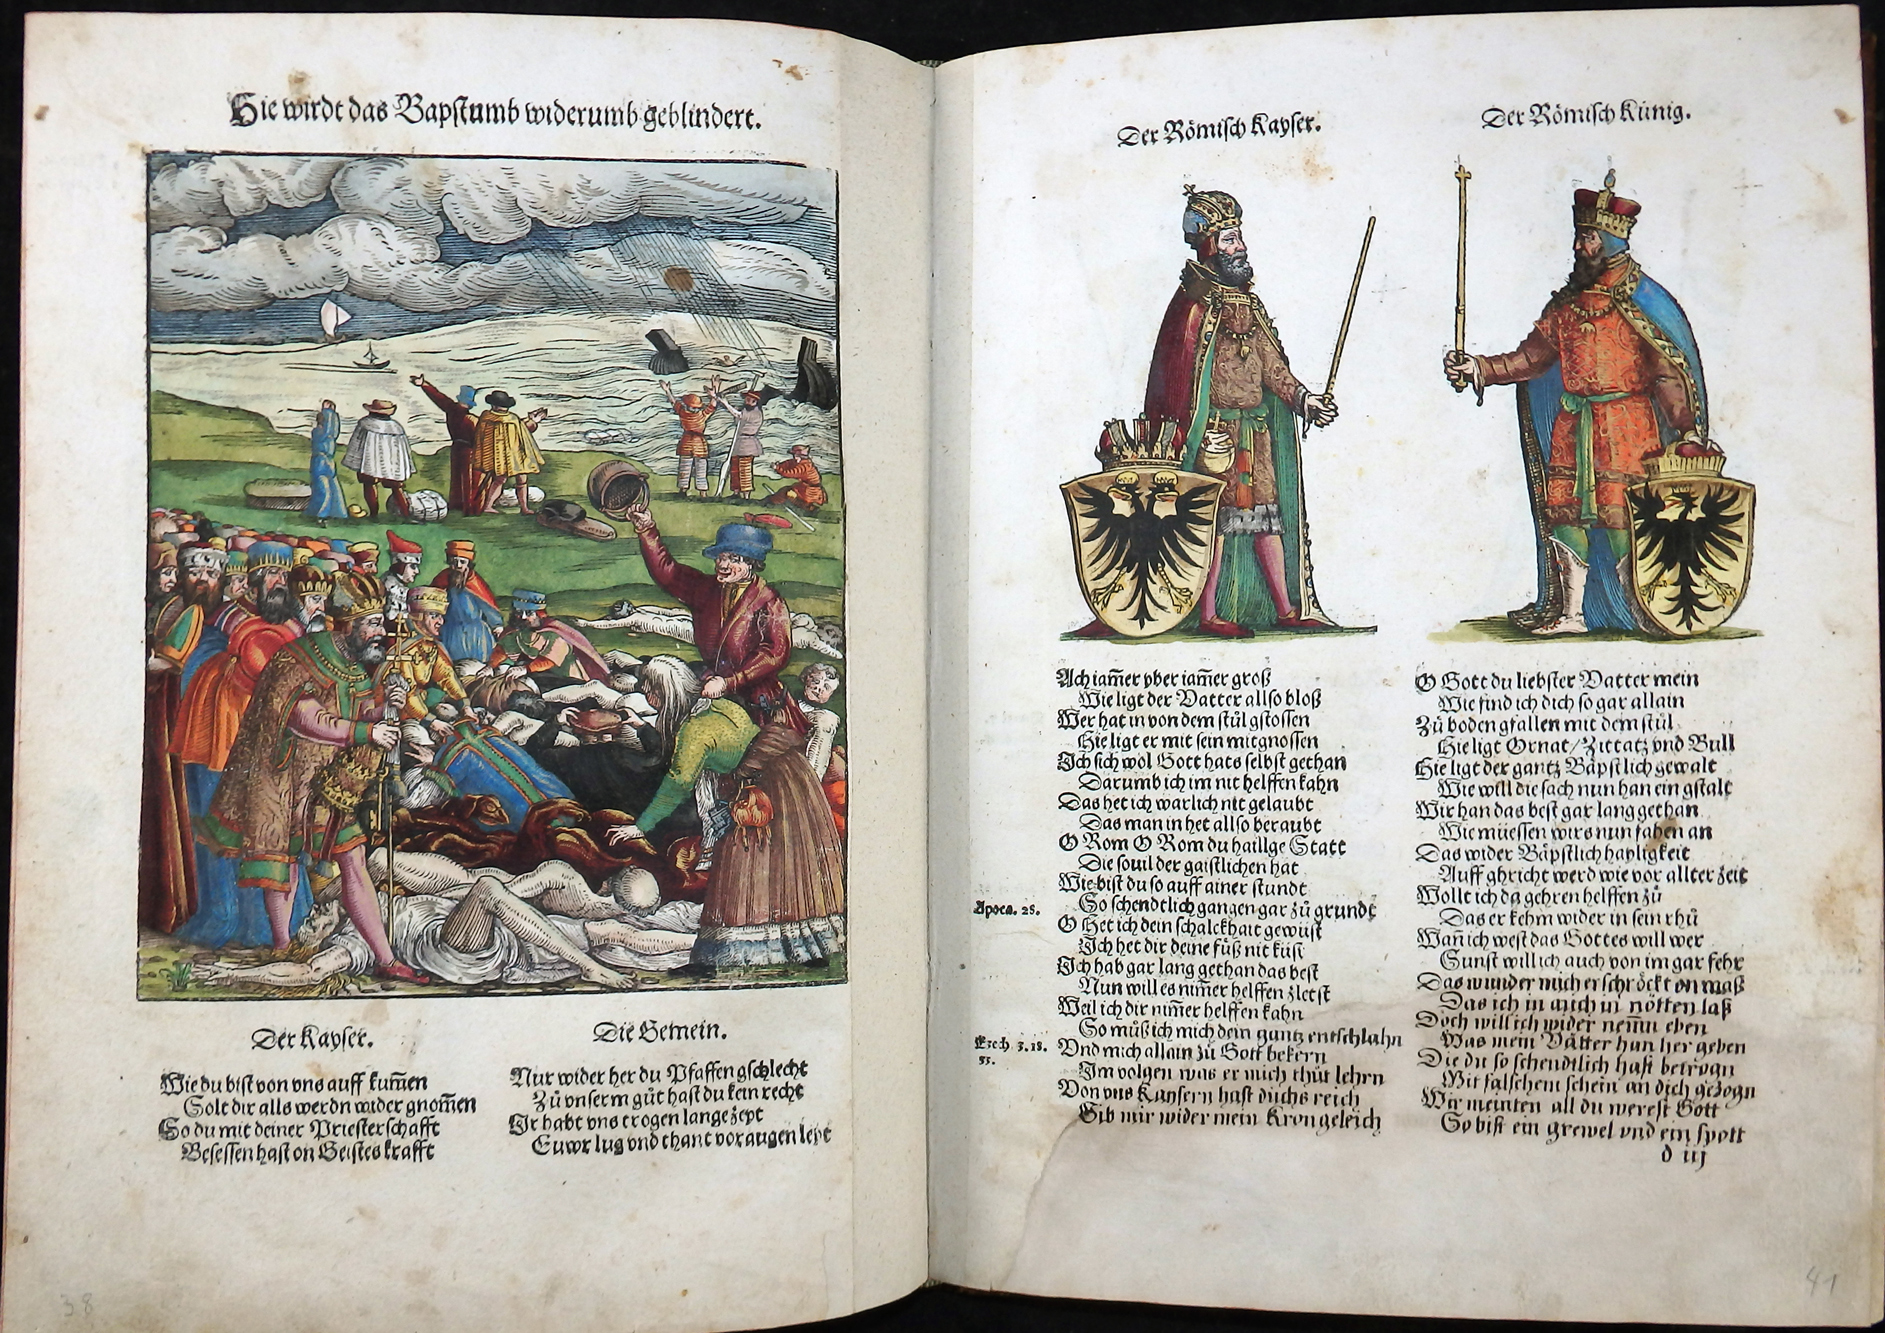 Hie wirdt das Bapstumb widerumb geblindert.
Der Kayser.
Wie du bist von vns auff kum̄en
Solt dir alls werdn wider gnom̄en
So du mit deiner Priesterschafft
Besessen hast on Geistes krafft
Die Gemein.
Nur wider her du Pfaffen gschlecht
Zů vnserm gůt hast du kein recht
Ir habt vns trogen lange zeyt
Euwr lug vnd thant vor augen leyt
38
Der Römisch Kayser.
Ach iam̄er vber iam̄er groß
Wie ligt der Vatter allso bloß
Wer hat in von dem stůl gstossen
Hie ligt er mit sein mitgnossen
Ich sich wol Gott hats selbst gethan
Darumb ich im nit helffen kahn
Das het ich warlich nit gelaubt
Das man in het allso beraubt
O Rom O Rom du haillge Statt
Die souil der gaistlichen hat
Wie bist du so auff ainer stundt
Apoca. 28.
So schendtlich gangen gar zů grundt
O Het ich dein schalckhait gewüst
Ich het dir deine füß nit küst
Ich hab gar lang gethan das best
Nun will es nim̄er helffen zletst
Weil ich dir nim̄er helffen kahn
So můß ich mich dein gantz entschlahn
Ezech. 3. 18.
33.
Vnd mich allain zů Gott bekern
Im volgen was er mich thůt lehrn
Von vns Kaysern hast düchs reich
Gib mir wider mein Kron geleich
Der Römisch Künig.
O Gott du liebster Vatter mein
Wie find ich dich so gar allain
Zů boden gfallen mit dem stůl
Hie ligt Ornat/Zittatz vnd Bull
Hie ligt der gantz Bäpstlich gewalt
Wie will die sach nun han ein gstalt
Wir han das best gar lang gethan
Wie müessen wirs nun fahen an
Das wider Bäpstlich hayligkeit
Auff ghricht werd wie vor allter zeit
Wollt ich da gehren helffen zů
Das er kehm wider in sein rhů
Wan̄ ich west das Gottes will wer
Sunst will ich auch von im gar fehr
Das wunder mich erschröckt on maß
Das ich in auch in nötten laß
Doch will ich wider nem̄n eben
Was mein Vätter han her geben
Die du so schendtlich hast betrogn
Mit falschem schein an dich gezogn
Wir meinten all du werest Gott
So bist ein grewel vnd ein spott
d iij
41